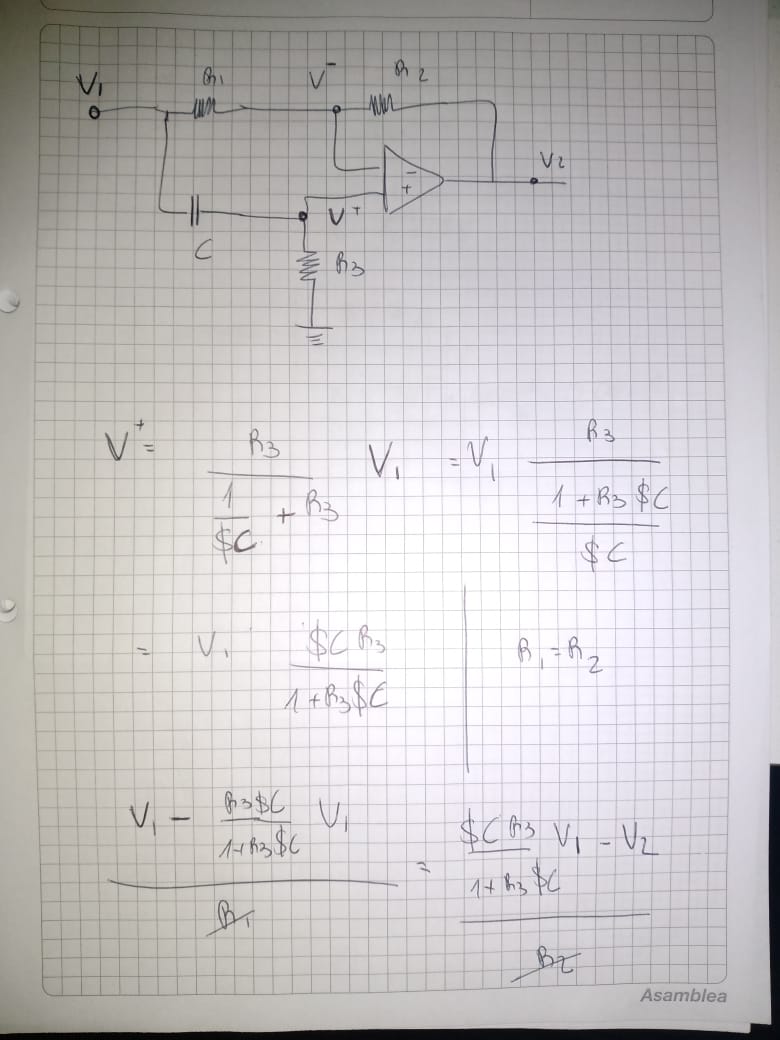 V₁ R₁ V⁻ R₂
V₂
- +
V⁺
C R₃
V⁺ = R₃ / (1/$C + R₃) V₁ = V₁ R₃ / ((1 + R₃ $C) / $C)
= V₁ $C R₃ / (1 + R₃ $C) R₁ = R₂
(V₁ - R₃ $C / (1 + R₃ $C) V₁) / R₁ = ($C R₃ / (1 + R₃ $C) V₁ - V₂) / R₂
Asamblea